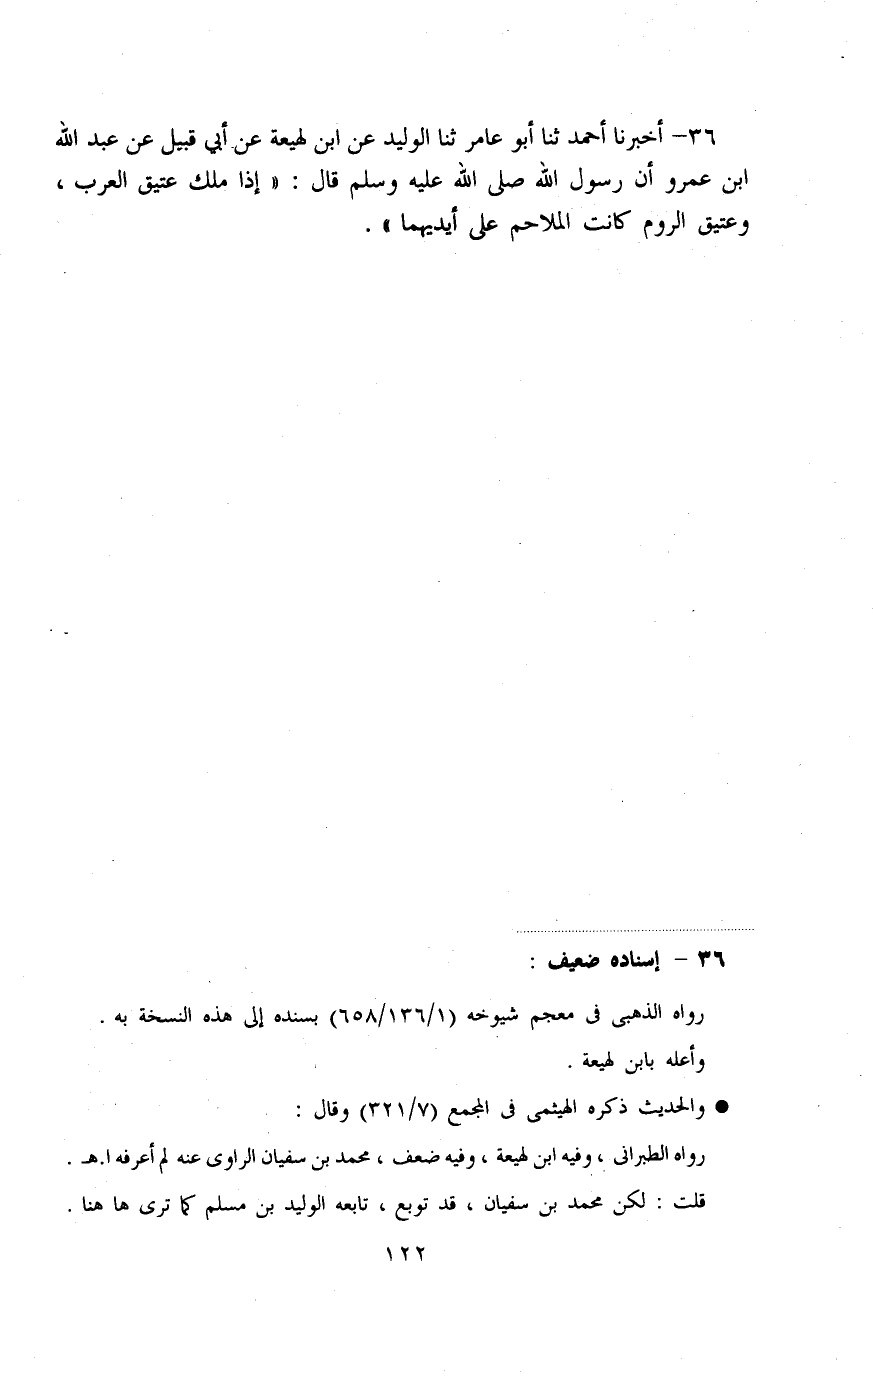 ٣٦– أخبرنا أحمد ثنا أبو عامر ثنا الوليد عن ابن لهيعة عن أبي قبيل عن عبد الله
ابن عمرو أن رسول الله صلى الله عليه وسلم قال : « إذا ملك عتيق العرب ،
وعتيق الروم كانت الملاحم على أيديهما » .
٣٦ – إسناده ضعيف :
رواه الذهبى فى معجم شيوخه (٦٥٨/١٣٦/١) بسنده إلى هذه النسخة به .
وأعله بابن لهيعة .
● والحديث ذكره الهيثمى فى المجمع (٣٢١/٧) وقال :
رواه الطبرانى ، وفيه ابن لهيعة ، وفيه ضعف ، محمد بن سفيان الراوى عنه لم أعرفه ا.هـ .
قلت : لكن محمد بن سفيان ، قد توبع ، تابعه الوليد بن مسلم كما ترى ها هنا .
١٢٢